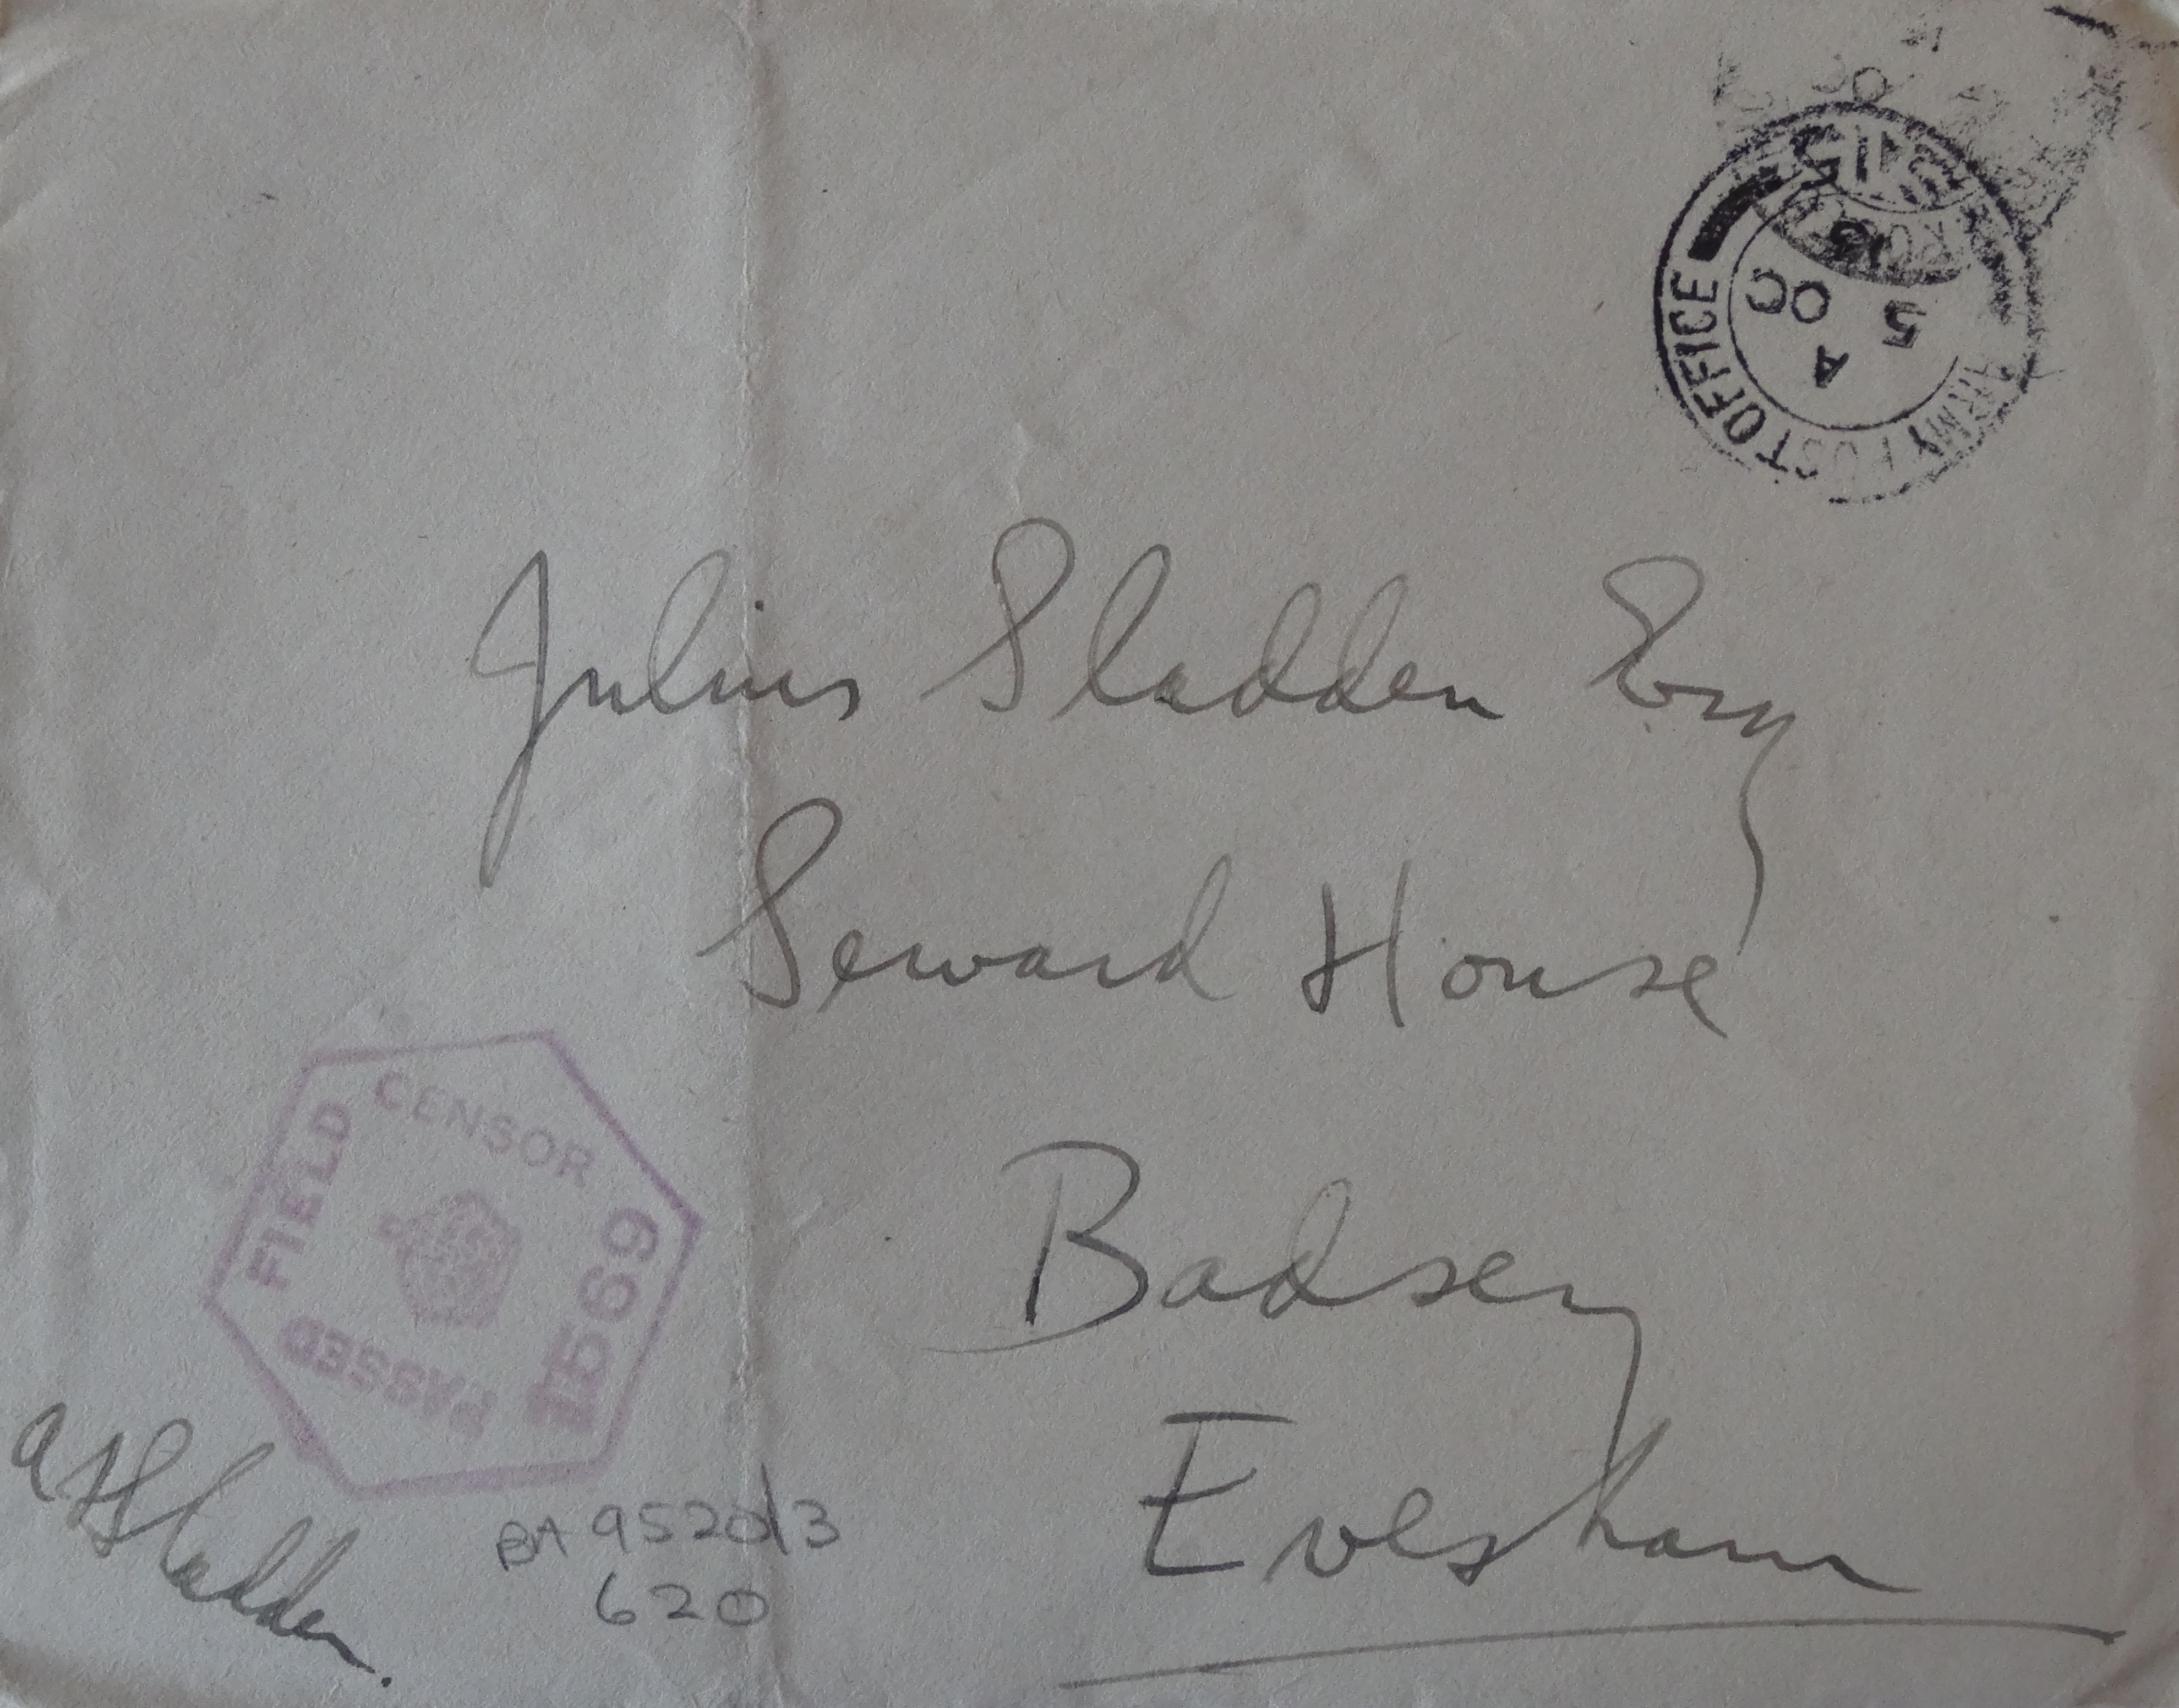 ARMY POST OFFICE
A
5 OC
Julius Sladden Esq
Seward House
Badsey
Evesham
FIELD CENSOR
1569
PASSED
A F Sladden.
BA 9520/3
620